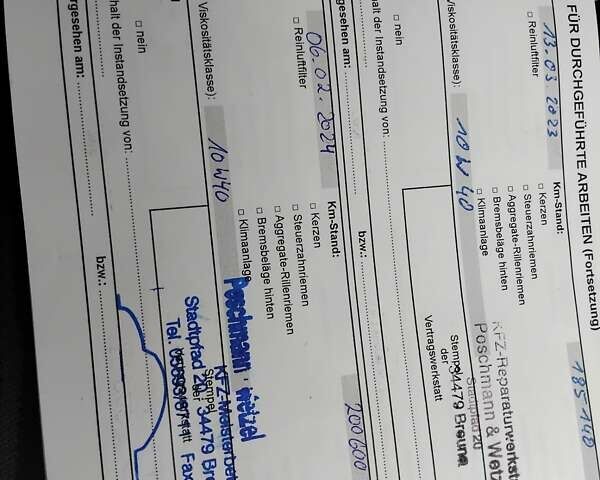 FÜR DURCHGEFÜHRTE ARBEITEN (Fortsetzung)
13.03.2023 Km-Stand: 185140
□ Reinluftfilter □ Kerzen
□ Steuerzahnriemen
□ Aggregate-Rillenriemen
□ Bremsbeläge hinten
□ Klimaanlage
Viskositätsklasse): 10 W 40
KFZ-Reparaturwerkst
Poschmann & Wetz
Stadtpfad 20
34479 Breuna
Stempel
der
Vertragswerkstatt
□ nein
halt der Instandsetzung von:
rgesehen am: bzw.:
06.02.2024 Km-Stand: 200600
□ Reinluftfilter □ Kerzen
□ Steuerzahnriemen
□ Aggregate-Rillenriemen
□ Bremsbeläge hinten
□ Klimaanlage
Viskositätsklasse): 10 W40
Poschmann Wetzel
KFZ-Meisterbet
Stadtpfad 20 34479 Bre
Tel. Fax
Stempel
□ nein
halt der Instandsetzung von:
rgesehen am: bzw.: